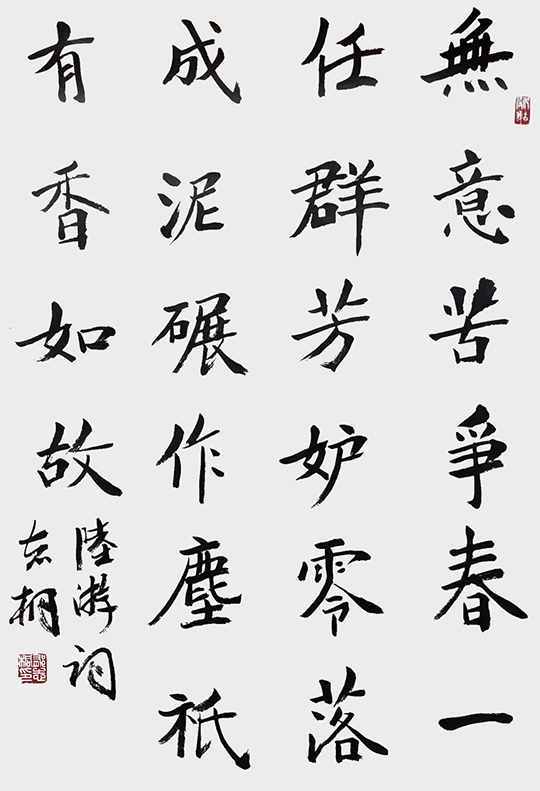 無意苦爭春一
任群芳妒零落
成泥碾作塵祇
有香如故
陸游詞